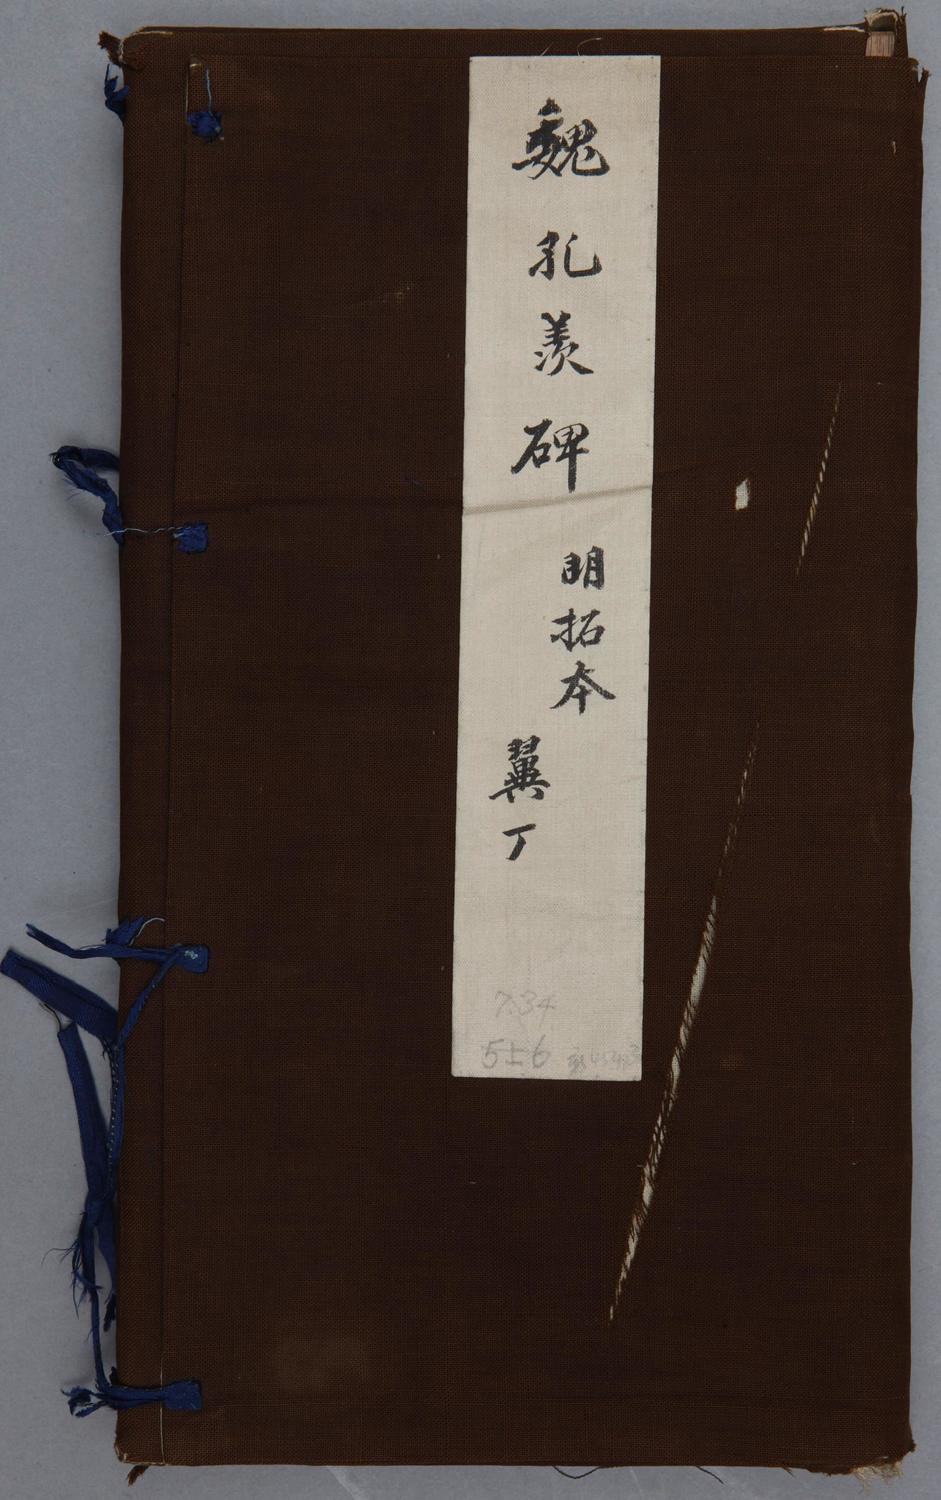 魏孔羨碑
明拓本
翼丁
7.34
556